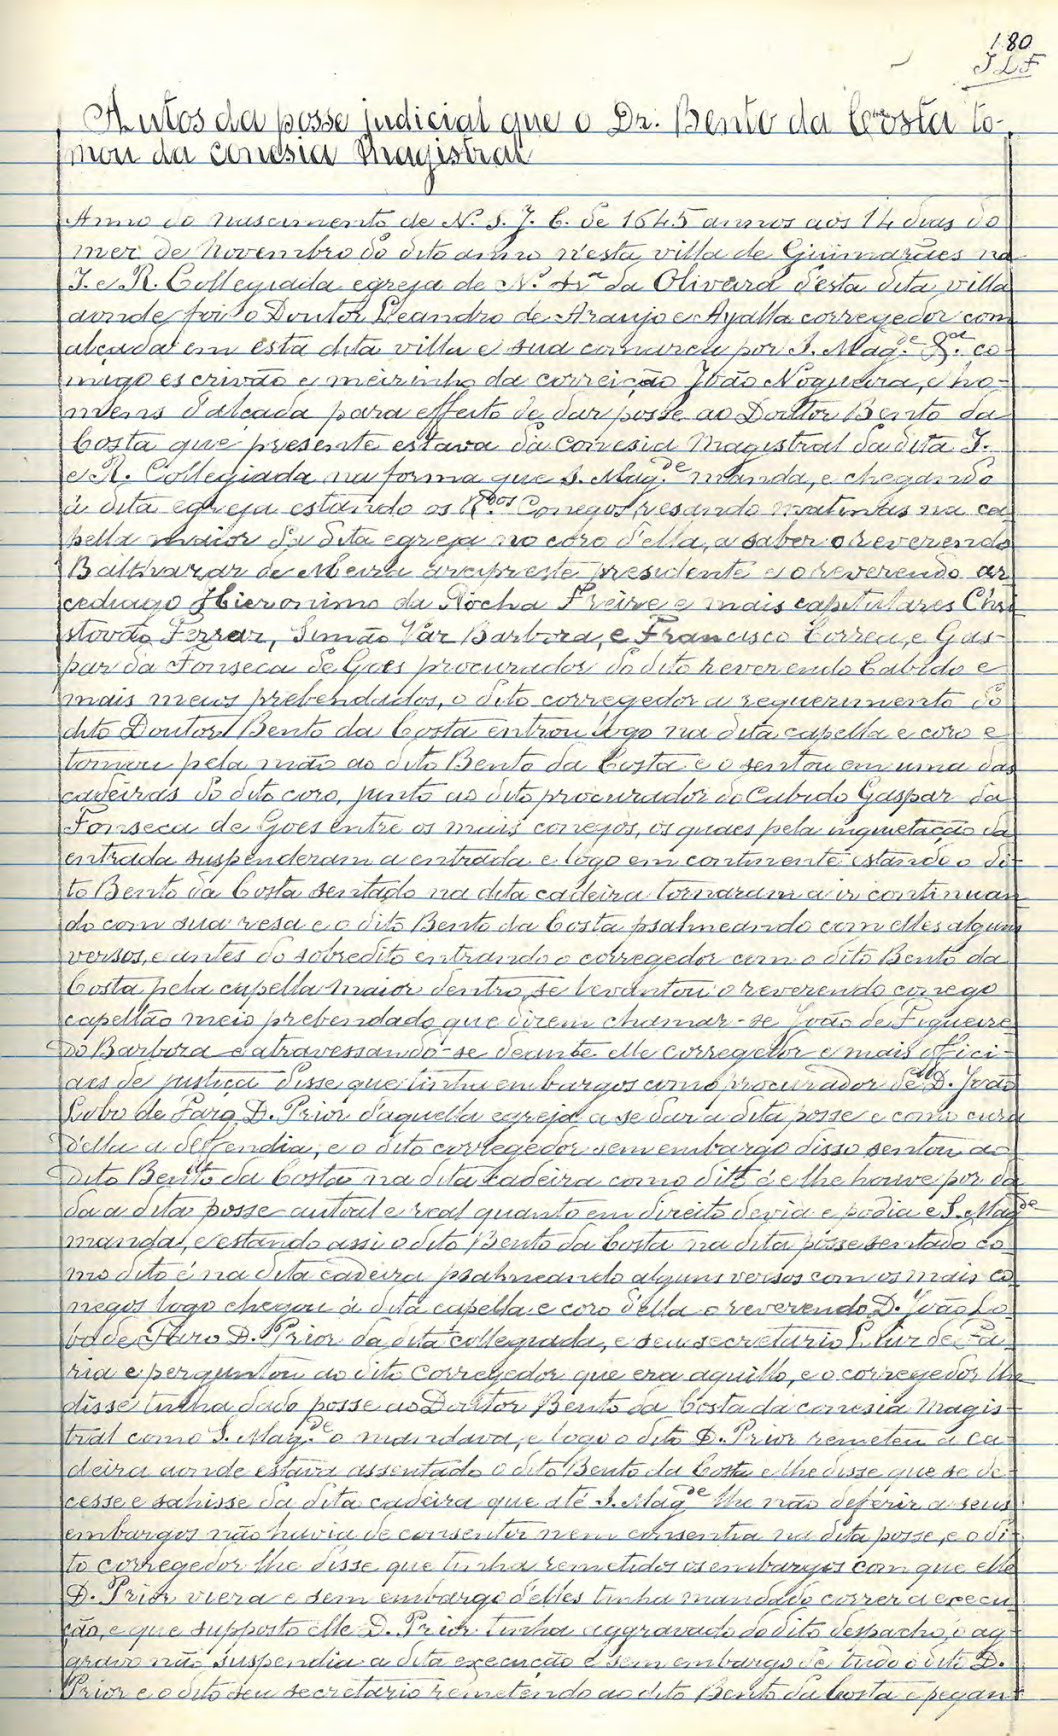 180
J L F
Autos da posse judicial que o Dr. Bento da Costa to-
mou da conesia Magistral
Anno do nascimento de N. S. J. C. de 1645 annos aos 14 dias do
mez de Novembro do dito anno n'esta villa de Guimarães na
I. e R. Collegiada egreja de N. Sr.ª da Oliveira d'esta dita villa
aonde foi o Doutor Leandro de Araujo e Ayalla corregedor com
alçada em esta dita villa e sua comarca por S. Mag.de co-
migo escrivão e meirinho da correição João Nogueira, e ho-
mens d'alçada para effeito de dar posse ao Doutor Bento da
Costa que presente estava da conesia Magistral da dita I.
e R. Collegiada na forma que S. Mag.de manda, e chegando
á dita egreja estando os R.dos Conegos resando matinas na ca
pella maior da dita egreja no coro d'ella, a saber o reverendo
Balthazar de Meira arcipreste presidente e o reverendo ar
cediago Hieronimo da Rocha Freire e mais capitulares Chri
stovão Ferraz, Simão Váz Barboza, e Francisco Correa, e Gas-
par da Fonseca de Goes procurador do dito reverendo Cabido e
mais meios prebendados, o dito corregedor a requerimento do
dito Doutor Bento da Costa entrou logo na dita capella e coro e
tomou pela mão ao dito Bento da Costa e o sentou em uma das
cadeiras do dito coro, junto ao dito procurador do Cabido Gaspar da
Fonseca de Goes entre os mais conegos, os quaes pela inquietação da
entrada suspenderam a entrada e logo em continente estando o di-
to Bento da Costa sentado na dita cadeira tornaram a ir continuan
do com sua resa e o dito Bento da Costa psalmeando com elles alguns
versos, e antes do sobredito entrando o corregedor com o dito Bento da
Costa pela capella maior dentro, se levantou o reverendo conego
capellão meio prebendado que dizem chamar-se João de Figueire
do Barboza e atravessando-se deante elle corregedor e mais offici-
aes de justiça disse que tinha embargos como procurador de D. João
Lobo de Faro D. Prior d'aquella egreja a se dar a dita posse e como cura
d'ella a deffendia, e o dito corregedor sem embargo disso sentou ao
dito Bento da Costa na dita cadeira como dito é e lhe houve por da
da a dita posse autoal e real quanto em direito devia e podia e S. Mag.de
manda, e estando assi o dito Bento da Costa na dita posse sentado co
mo dito é na dita cadeira psalmeando alguns versos com os mais co
negos logo chegou á dita capella e coro d'ella o reverendo D. João Lo
bo de Faro D. Prior da dita collegiada, e seu secretario Luiz de Fa
ria e perguntou ao dito corregedor que era aquillo, e o corregedor lhe
disse tinha dado posse ao Doutor Bento da Costa da conesia Magis-
tral como S. Mag.de o mandava, e logo o dito D. Prior remeteu á ca-
deira aonde estava assentado o dito Bento da Costa e lhe disse que se de
cesse e sahisse da dita cadeira que até S. Mag.de lhe não deferir a seus
embargos não havia de consentir nem consentia na dita posse, e o di-
to corregedor lhe disse que tinha remetidos os embargos com que elle
D. Prior viera e sem embargo d'elles tinha mandado correr a execu
ção, e que supposto elle D. Prior tinha aggravado do dito despacho, o ag
gravo não suspendia a dita execução e sem embargo de tudo o dito D.
Prior e o dito seu secretario remetendo ao dito Bento da Costa e pegan-